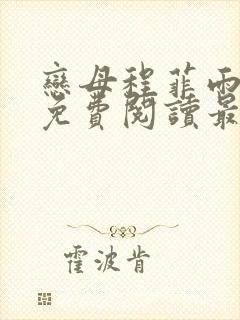 戀母程菲雨
免費閱讀最
霍波肯